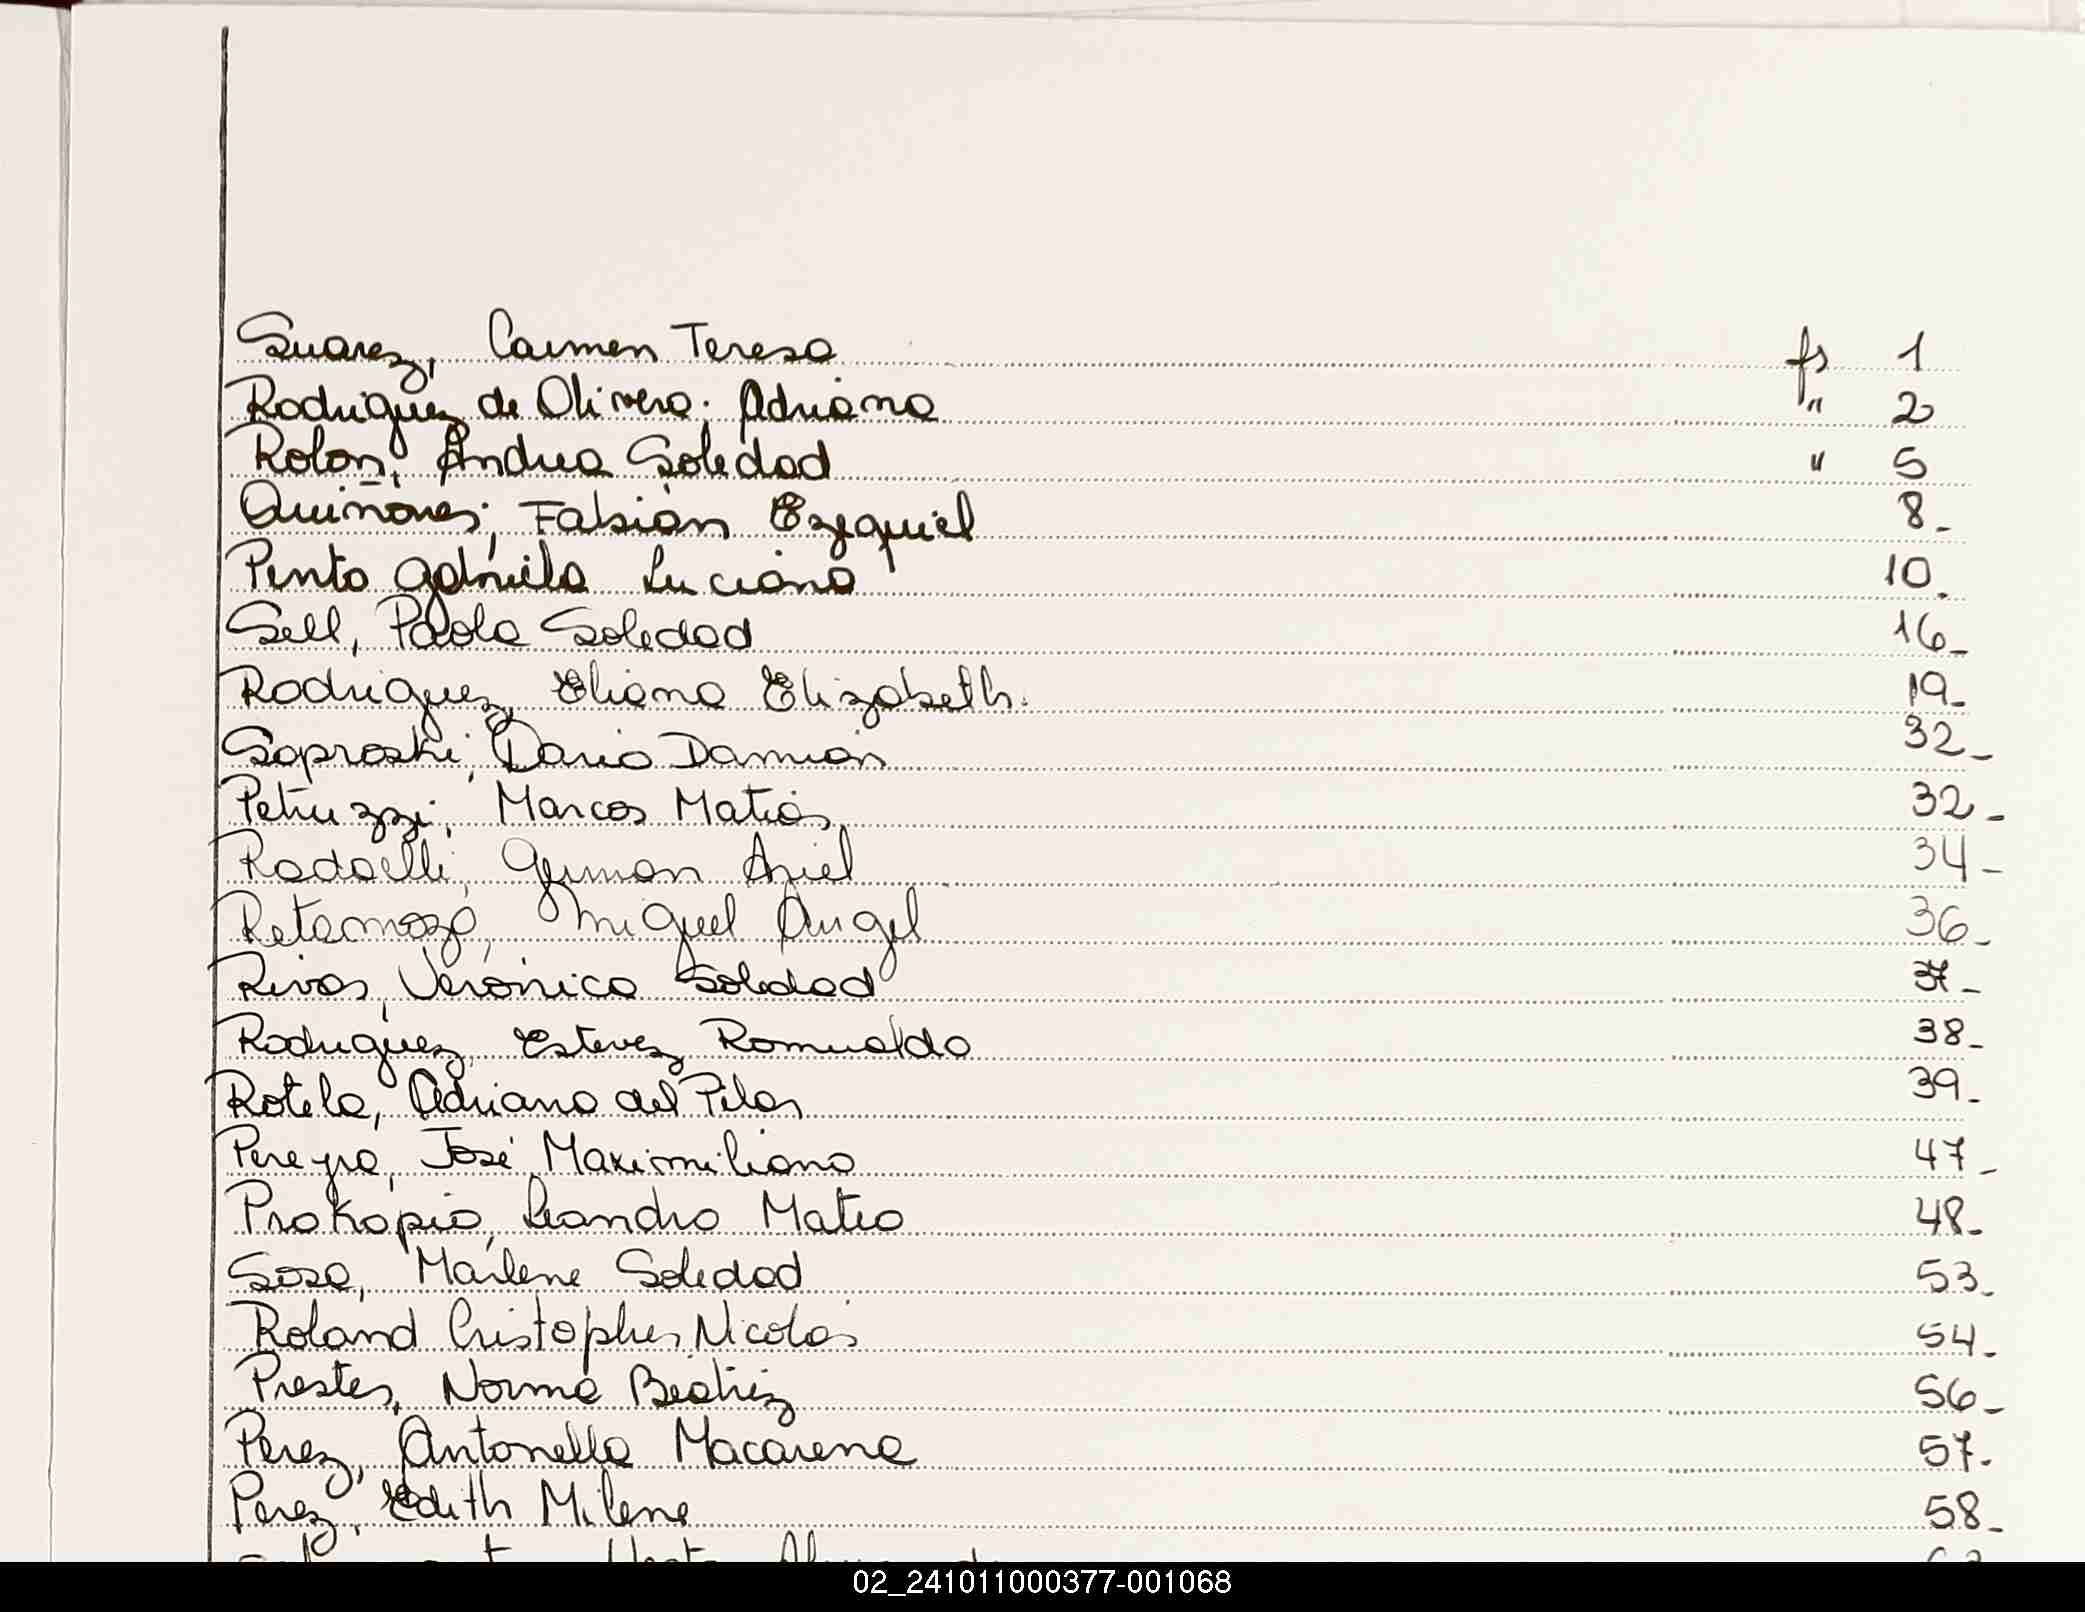 Suarez, Carmen Teresa fs 1
Rodriguez de Olivera. Adriana " 2
Rolon, Andrea Soledad " 5
Quiñones, Fabián Ezequiel 8-
Pinto Gabriela Luciana 10.
Sell, Paola Soledad 16-
Rodriguez, Eliana Elizabeth. 19-
Soproski, Dario Damián 32-
Petruzzi, Marcos Matías 32-
Radaelli, German Ariel 34-
Retamozo, Miguel Angel 36-
Rivas, Verónica Soledad 37-
Rodriguez, Estevez Romualdo 38-
Rotela, Adriana del Pilar 39-
Pereyra, José Maximiliano 47-
Prokopio, Leandro Mateo 48-
Sosa, Marlene Soledad 53-
Roland Cristopher Nicolas 54-
Prestes, Norma Beatriz 56-
Perez, Antonella Macarena 57-
Perez, Edith Milene 58-
02_241011000377-001068